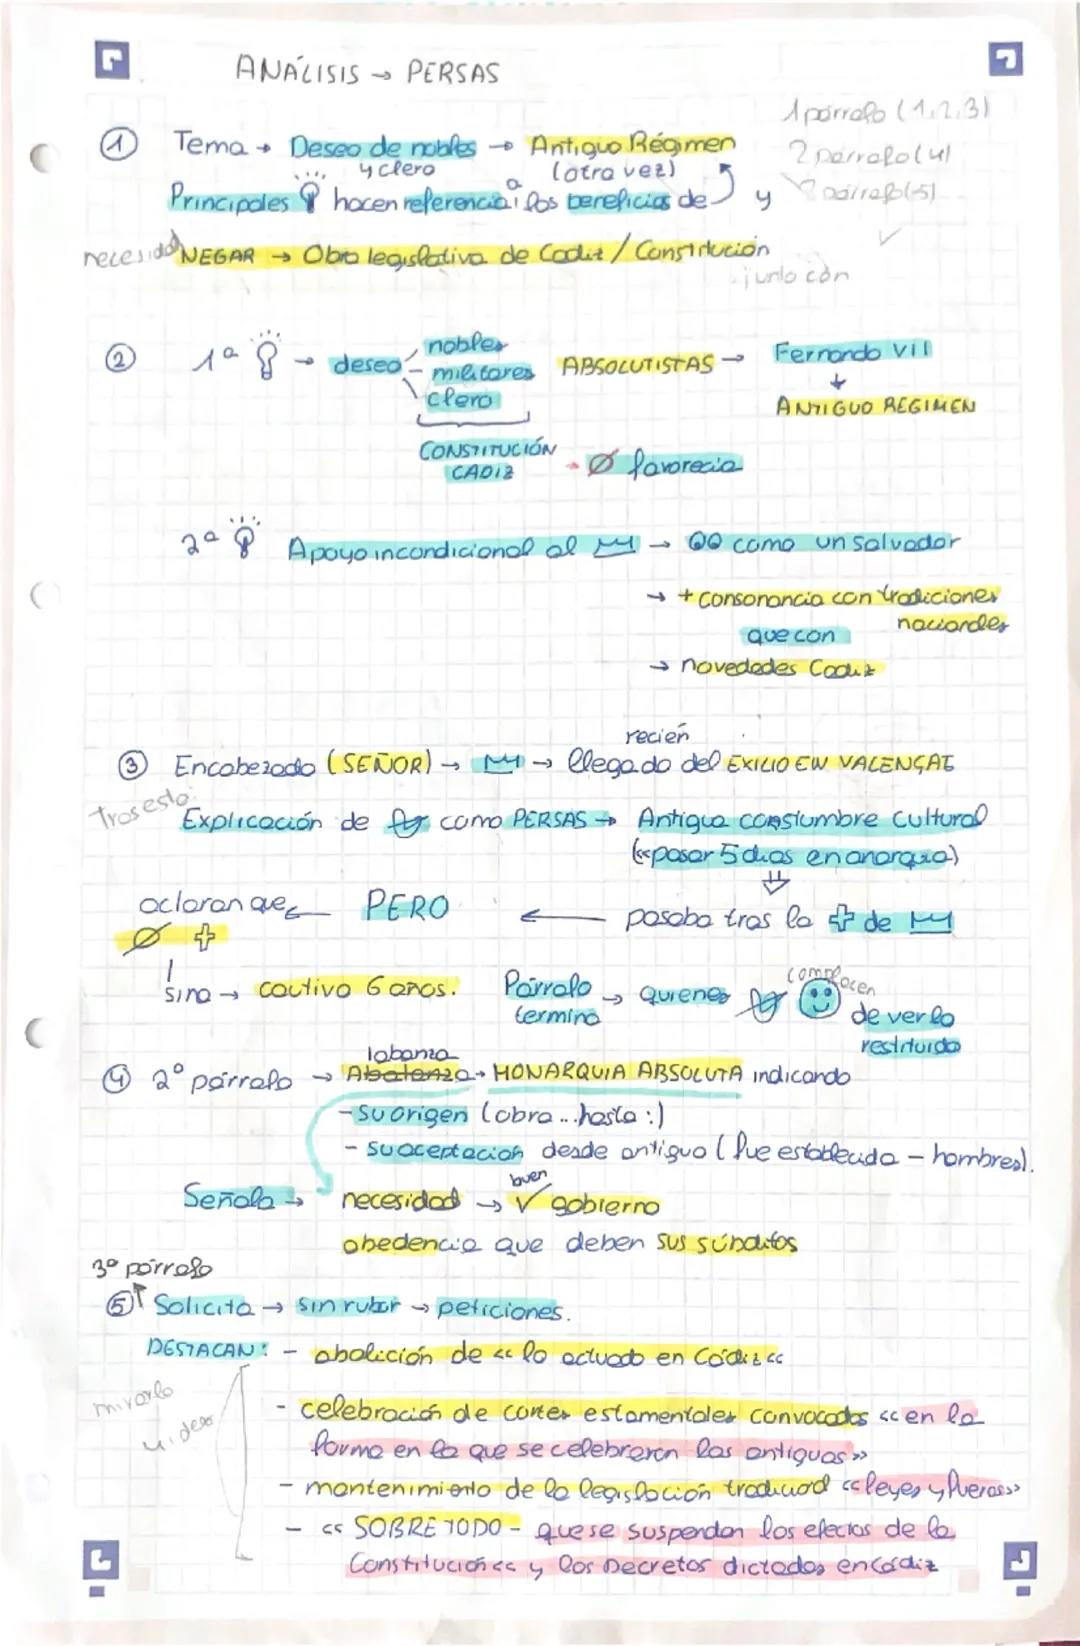 ANÁLISIS → PERSAS
1 párrafo (1,2,3)
① Tema → Deseo de nobles → Antiguo Régimen
2 párrafo (4)
y clero (otra vez)
Principales hacen referencia a los beneficios de y
párrafo (5)
necesidad NEGAR → Obra legislativa de Cadiz / Constitución
junto con
② 1ª → deseo nobles
militares
clero
ABSOLUTISTAS → Fernando VII
↓
ANTIGUO REGIMEN
CONSTITUCIÓN
CADIZ → Ø favorecia
2ª Apoyo incondicional al → como un salvador
→ + consonancia con tradiciones
nacionales
que con
→ novedades Cadiz
recien
③ Encabezado (SEÑOR) → → llegado del EXILIO EN VALENÇAE
Tras esto:
Explicación de como PERSAS → Antigua constumbre cultural
(«pasar 5 dias en anarquia)
⇓
aclaran que ← PERO ← pasaba tras la ✝ de
Ø ✝
sino → cautivo 6 años.
Párrafo
termina → quienes complacen
de verlo
restituido
labanza
④ 2º párrafo → Abalanza → MONARQUIA ABSOLUTA indicando
- su origen (obra...hasta :)
- su aceptación desde antiguo (fue establecida - hombres).
buen
Señala → necesidad → ✓ gobierno
obedencia que deben sus súbditos
3º párrafo
⑤ Solicita → sin rubor → peticiones.
DESTACAN: - abolición de «lo actuado en Cádiz«
mirarlo
u. deso
- celebración de cortes estamentales convocados «en la
forma en la que se celebraron las antiguas»
- mantenimiento de la legislación tradiciond «leyes y fueros»
- «SOBRE TODO - que se suspendan los efectos de la
Constitución« y los Decretos dictados en Cádiz